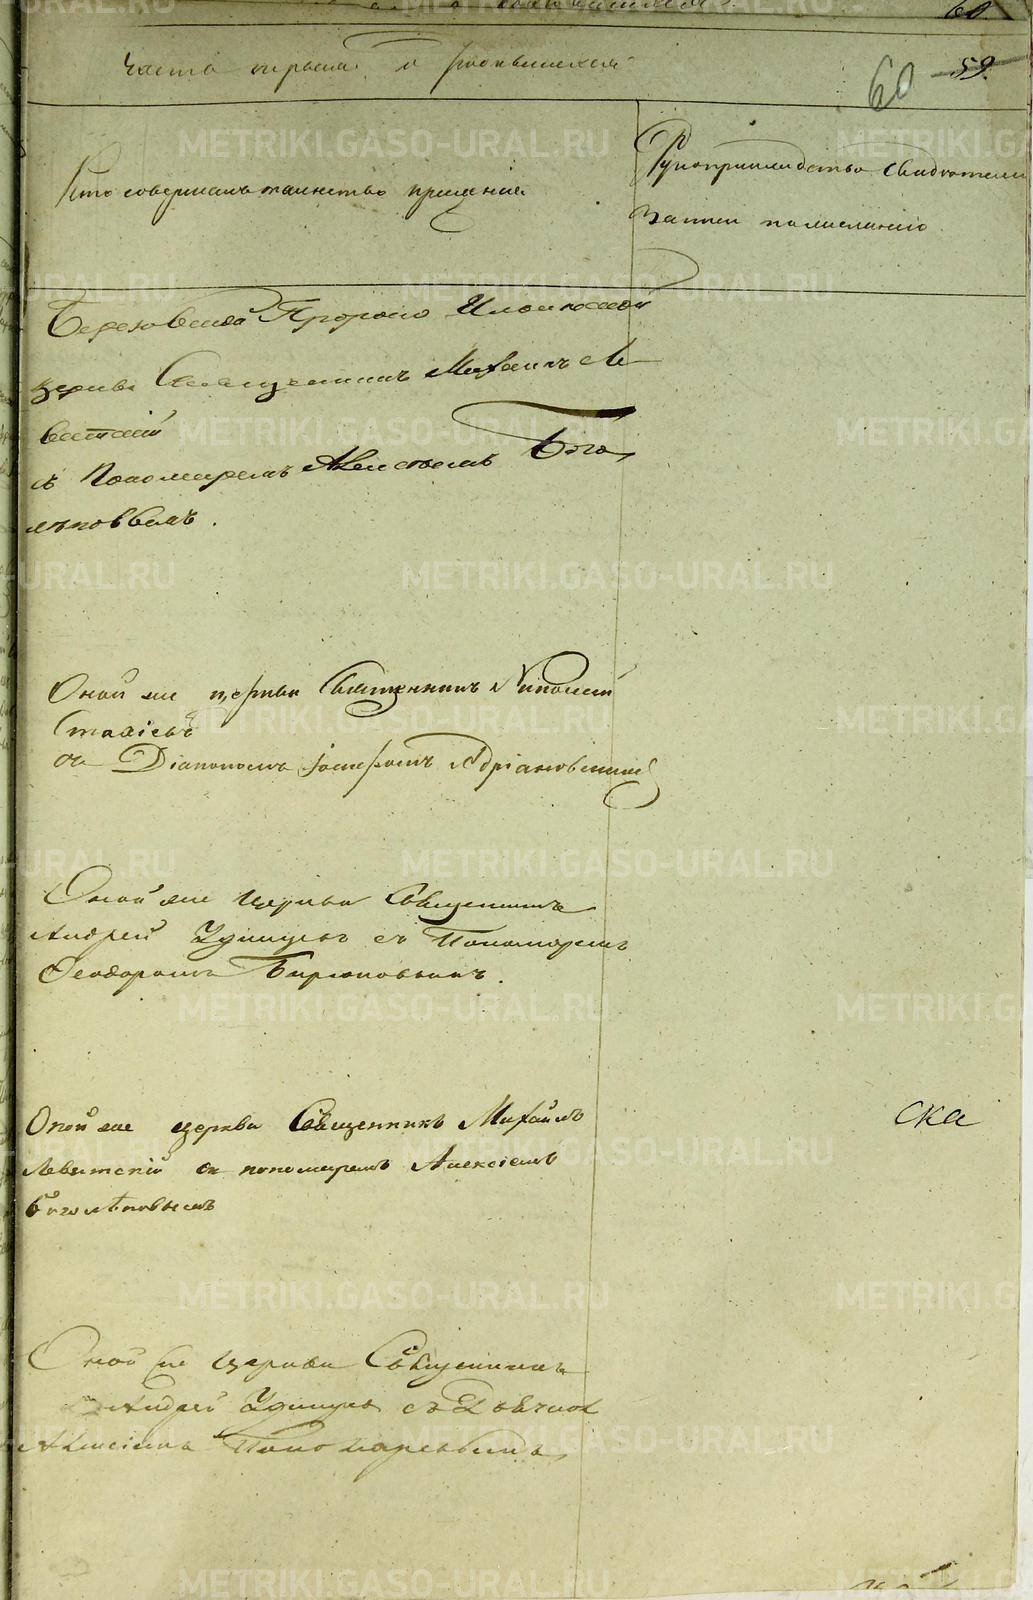 60
59.
60
Часть первая. о родившихся
Кто совершалъ таинство крещенія
Рукоприкладство свидѣтелей
записи по желанію.
Березовской Пророко Ильинской
церкви Священникъ Михаилъ Ле
витскій
съ Пономаремъ Алексѣемъ Бого
лѣповымъ.
Оной же церкви Священникъ Николай
Стахіевъ
съ Діакономъ Адріановскимъ
Оной же церкви Священникъ
Андрей Удинцевъ съ Пономаремъ
Ѳеодоромъ Бирюковымъ.
Оной же церкви Священникъ Михаилъ
Левитскій съ пономаремъ Алексіемъ
Боголѣповымъ
Оной же церкви Священникъ
Андрей Удинцевъ съ Дьячкомъ
Алексіемъ Пономаревымъ
ска
METRIKI.GASO-URAL.RU